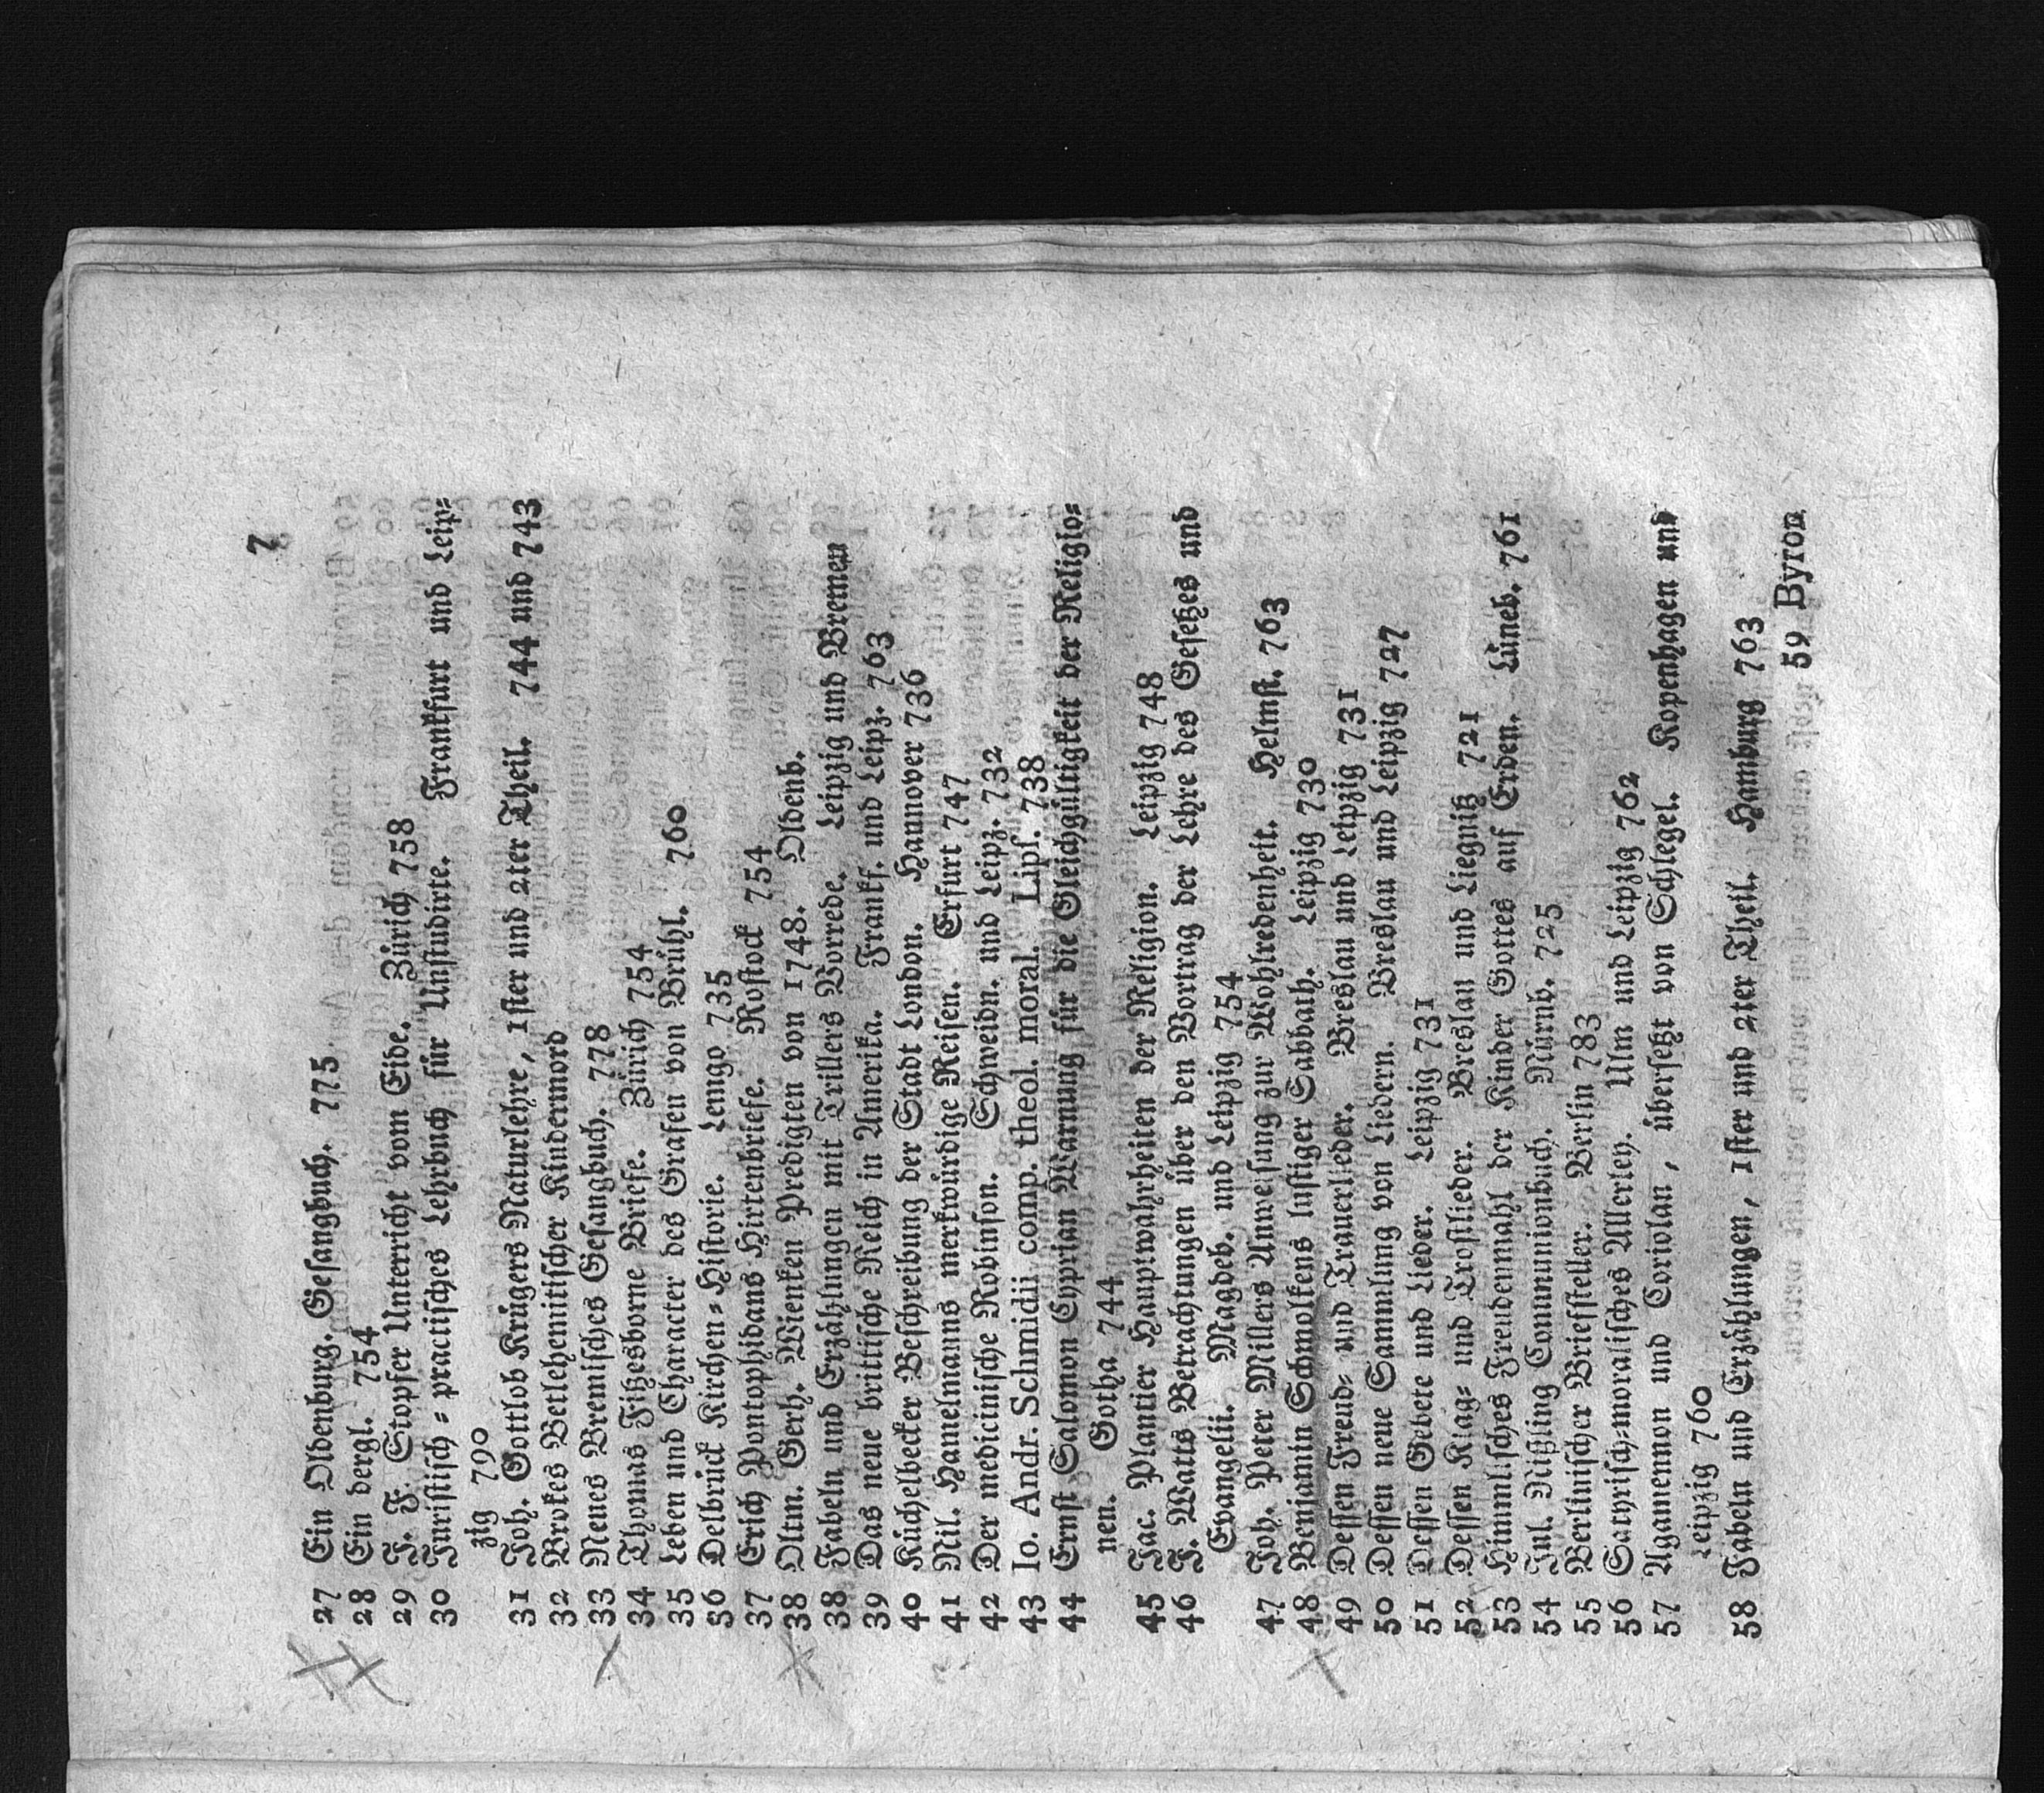 7
27 Ein Oldenburg. Gesangbuch. 775
28 Ein dergl. 754
29 J. F. Stopfer Unterricht vom Eide. Zürich 758
30 Juristisch-practisches Lehrbuch für Unstudirte. Frankfurt und Leip-
zig 790
31 Joh. Gottlob Krügers Naturlehre, 1ster und 2ter Theil. 744 und 743
32 Brokes Betlehemitischer Kindermord
33 Neues Bremisches Gesangbuch. 778
34 Thomas Fitzesborne Briefe. Zürich 754
35 Leben und Character des Grafen von Brühl. 760
36 Delbrück Kirchen-Historie. Lemgo 735
37 Erich Pontophidans Hirtenbriefe. Rostock 754
38 Oltm. Gerh. Wienken Predigten von 1748. Oldenb.
38 Fabeln und Erzählungen mit Trillers Vorrede. Leipzig und Bremen
39 Das neue brittische Reich in Amerika. Frankf. und Leipz. 763
40 Küchelbecker Beschreibung der Stadt London. Hannover 736
41 Nil. Hanelmanns merkwürdige Reisen. Erfurt 747
42 Der medicinische Robinson. Schweidn. und Leipz. 732
43 Io. Andr. Schmidii comp. theol. moral. Lips. 738
44 Ernst Salomon Cyprian Warnung für die Gleichgültigkeit der Religio-
nen. Gotha 744
45 Jac. Plantier Hauptwahrheiten der Religion. Leipzig 748
46 J. Watts Betrachtungen über den Vortrag der Lehre des Gesetzes und
Evangelii. Magdeb. und Leipzig 754
47 Joh. Peter Millers Anweisung zur Wohlredenheit. Helmst. 763
48 Benjamin Schmolkens lustiger Sabbath. Leipzig 730
49 Dessen Freud- und Trauerlieder. Breslau und Leipzig 731
50 Dessen neue Sammlung von Liedern. Breslau und Leipzig 727
51 Dessen Gebete und Lieder. Leipzig 731
52 Dessen Klag- und Trostlieder. Breslau und Liegnitz 721
53 Himmlisches Freudenmahl der Kinder Gottes auf Erden. Lüneb. 761
54 Jul. Nißling Communionbuch. Nürnb. 725
55 Berlinischer Briefsteller. Berlin 783
56 Satyrisch-moralisches Allerley. Ulm und Leipzig 762
57 Agamemnon und Coriolan, übersetzt von Schlegel. Kopenhagen und
Leipzig 760
58 Fabeln und Erzählungen, 1ster und 2ter Theil. Hamburg 763
59 Byron